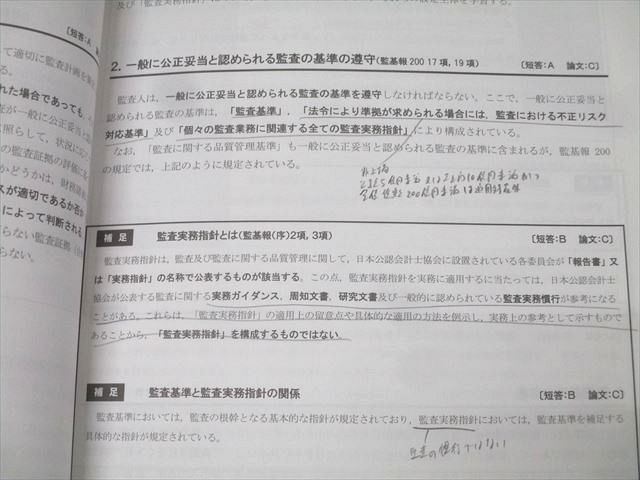 及び「監査実務指針」
〔短答：A
って適切に監査計画を
れた場合であっても、
監査人は，一般に公正妥当と認められる監査の基準を遵守しなければならない。ここで，一般に公正妥当と
2．一般に公正妥当と認められる監査の基準の遵守(監基報200 17項，19項)　〔短答：A　論文：C〕
認められる監査の基準は，「監査基準」，「法令により準拠が求められる場合には，監査における不正リスク
対応基準」及び「個々の監査業務に関連する全ての監査実務指針」により構成されている。
なお，「監査に関する品質管理基準」も一般に公正妥当と認められる監査の基準に含まれるが，監基報200
の規定では，上記のように規定されている。
に照らして，状況に
の監査証拠の評価に
かどうかは，財務諸
スが適切であるか否か
によって判断される
らない監査証拠
らない。
補足　監査実務指針とは(監基報(序)2項，3項)　〔短答：B　論文：C〕
監査実務指針は，監査及び監査に関する品質管理に関して，日本公認会計士協会に設置されている各委員会が「報告書」又
は「実務指針」の名称で公表するものが該当する。この点，監査実務指針を実務に適用するに当たっては，日本公認会計士
協会が公表する監査に関する実務ガイダンス，周知文書，研究文書及び一般的に認められている監査実務慣行が参考になる
ことがある。これらは，「監査実務指針」の適用上の留意点や具体的な適用の方法を例示し，実務上の参考として示すもので
あることから，「監査実務指針」を構成するものではない。
補足　監査基準と監査実務指針の関係　〔短答：B　論文：C〕
監査基準においては，監査の根幹となる基本的な指針が規定されており，監査実務指針においては，監査基準を補足する
具体的な指針が規定されている。
監査の慣行ではない